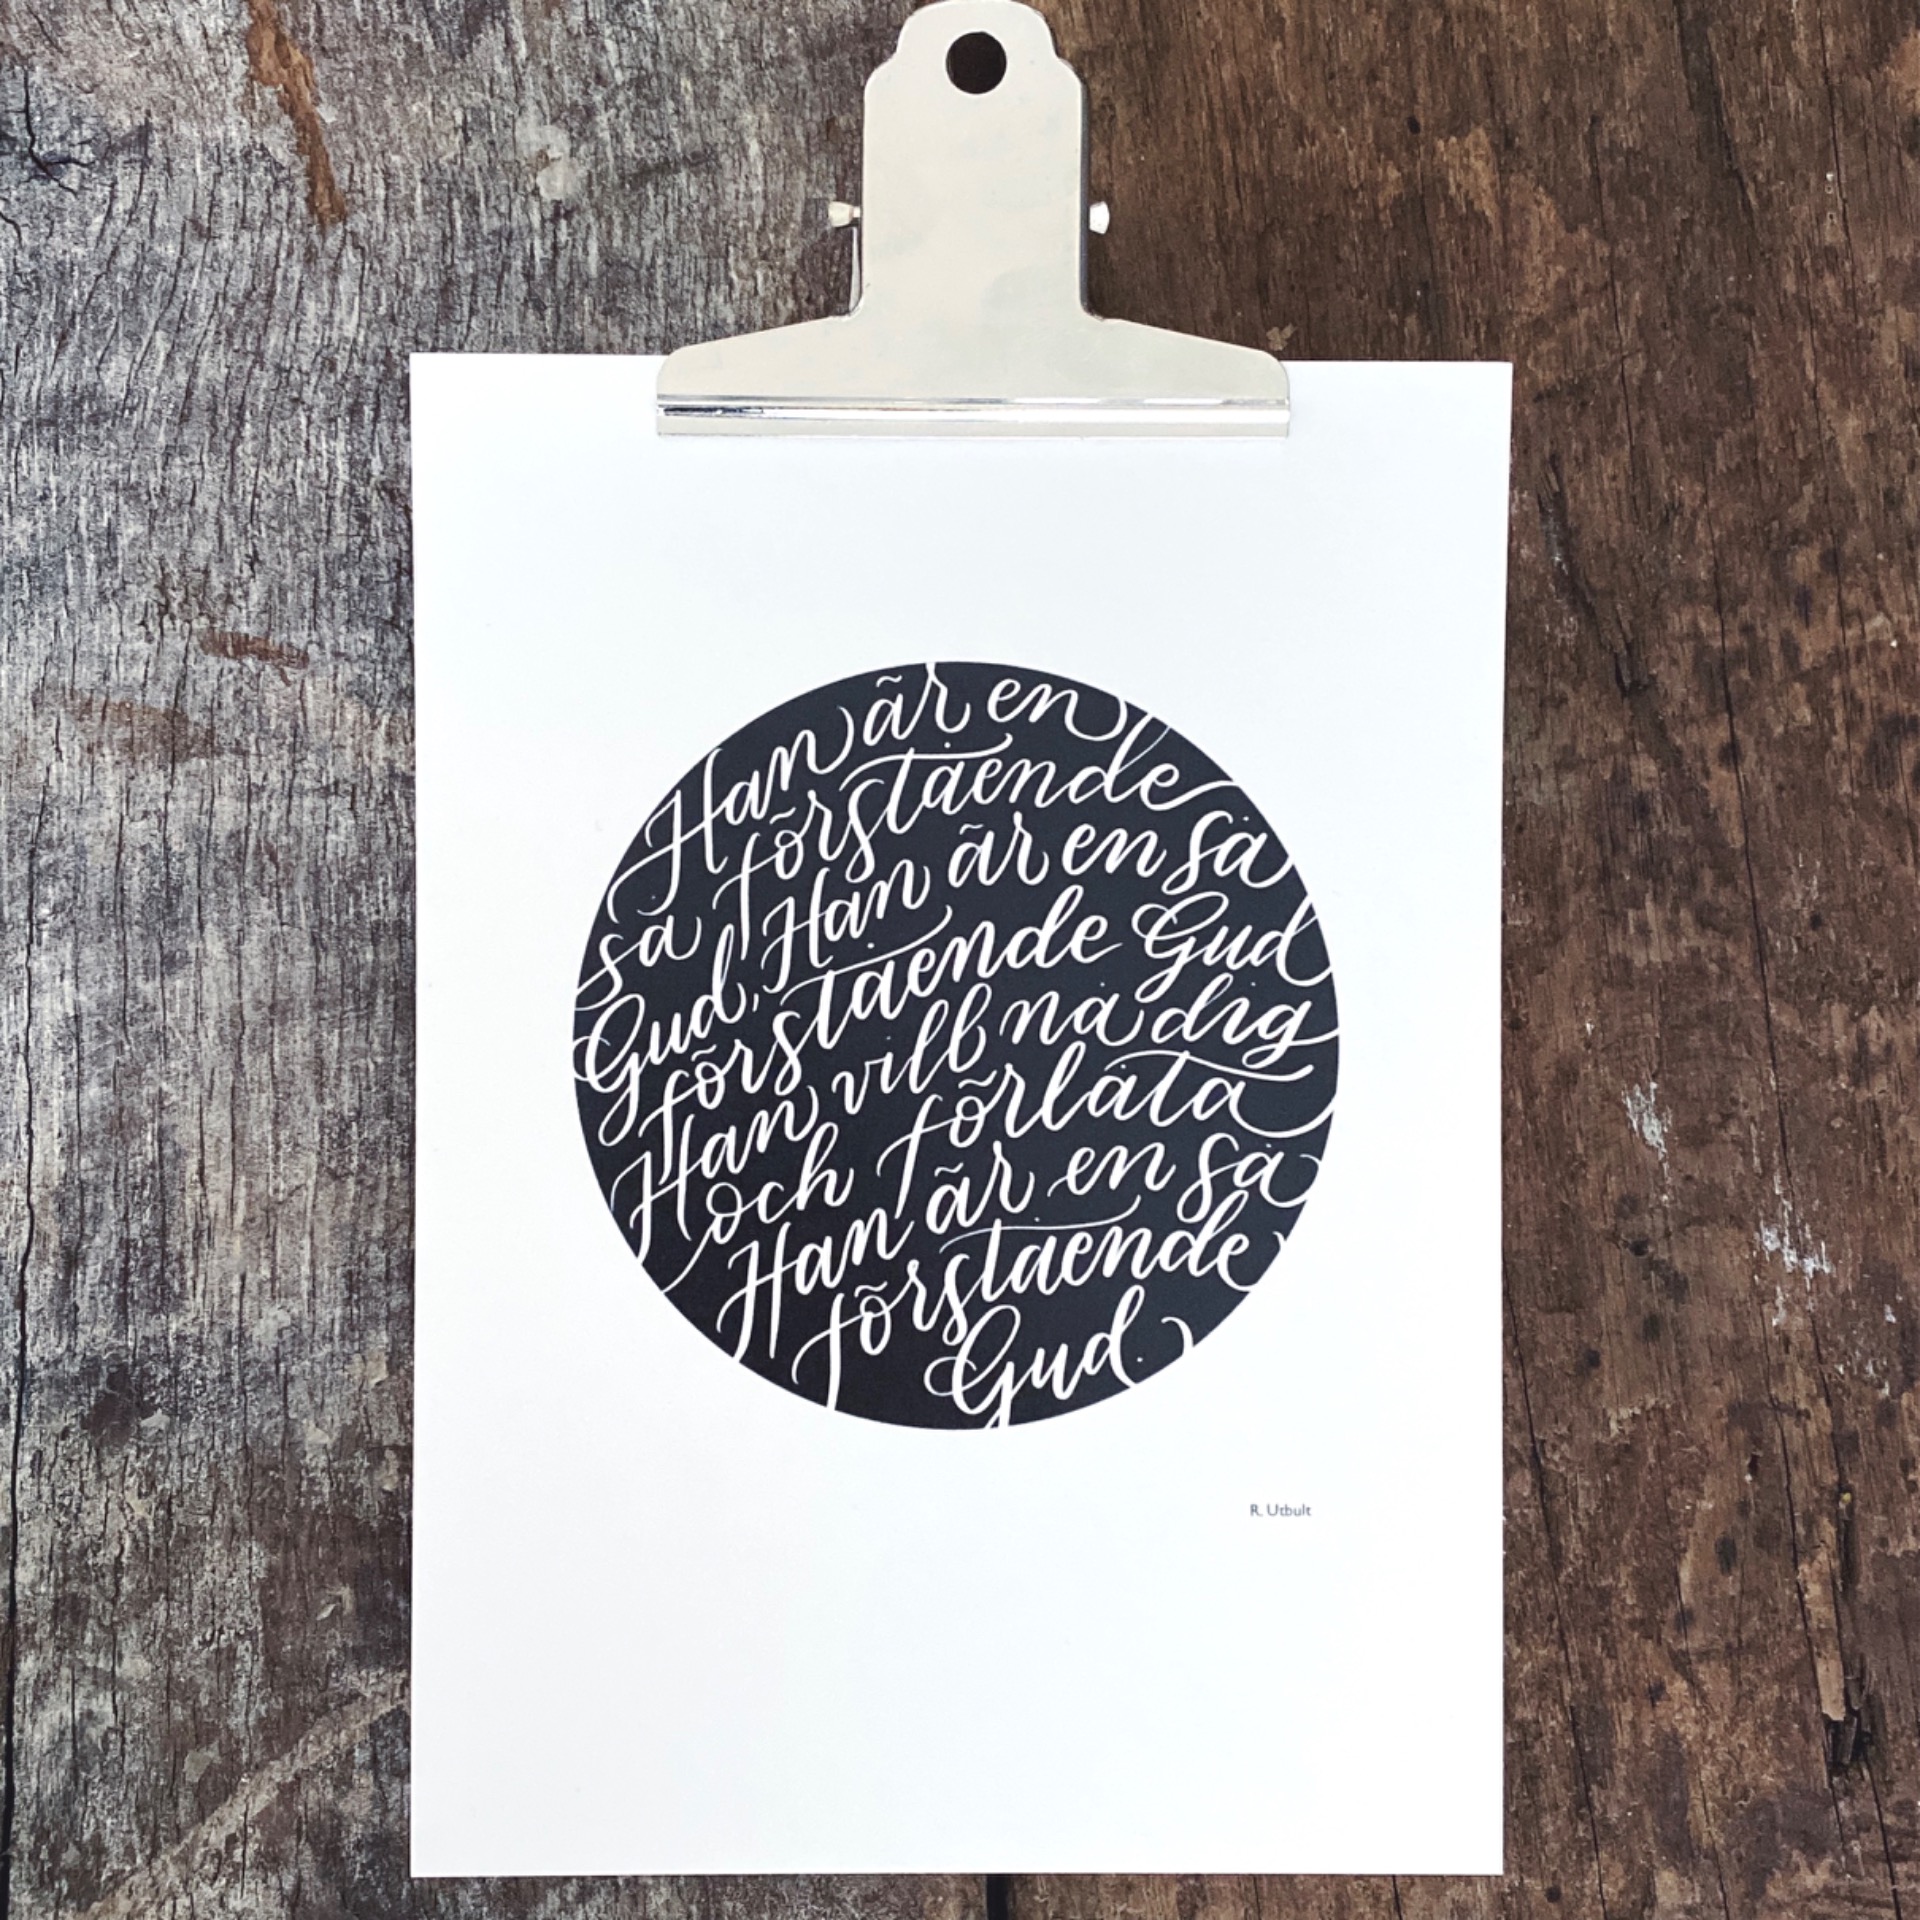 Han är en
så förstående
Gud, Han är en så
förstående Gud
Han vill nå dig
och förlåta
Han är en så
förstående
Gud.
R. Utbult